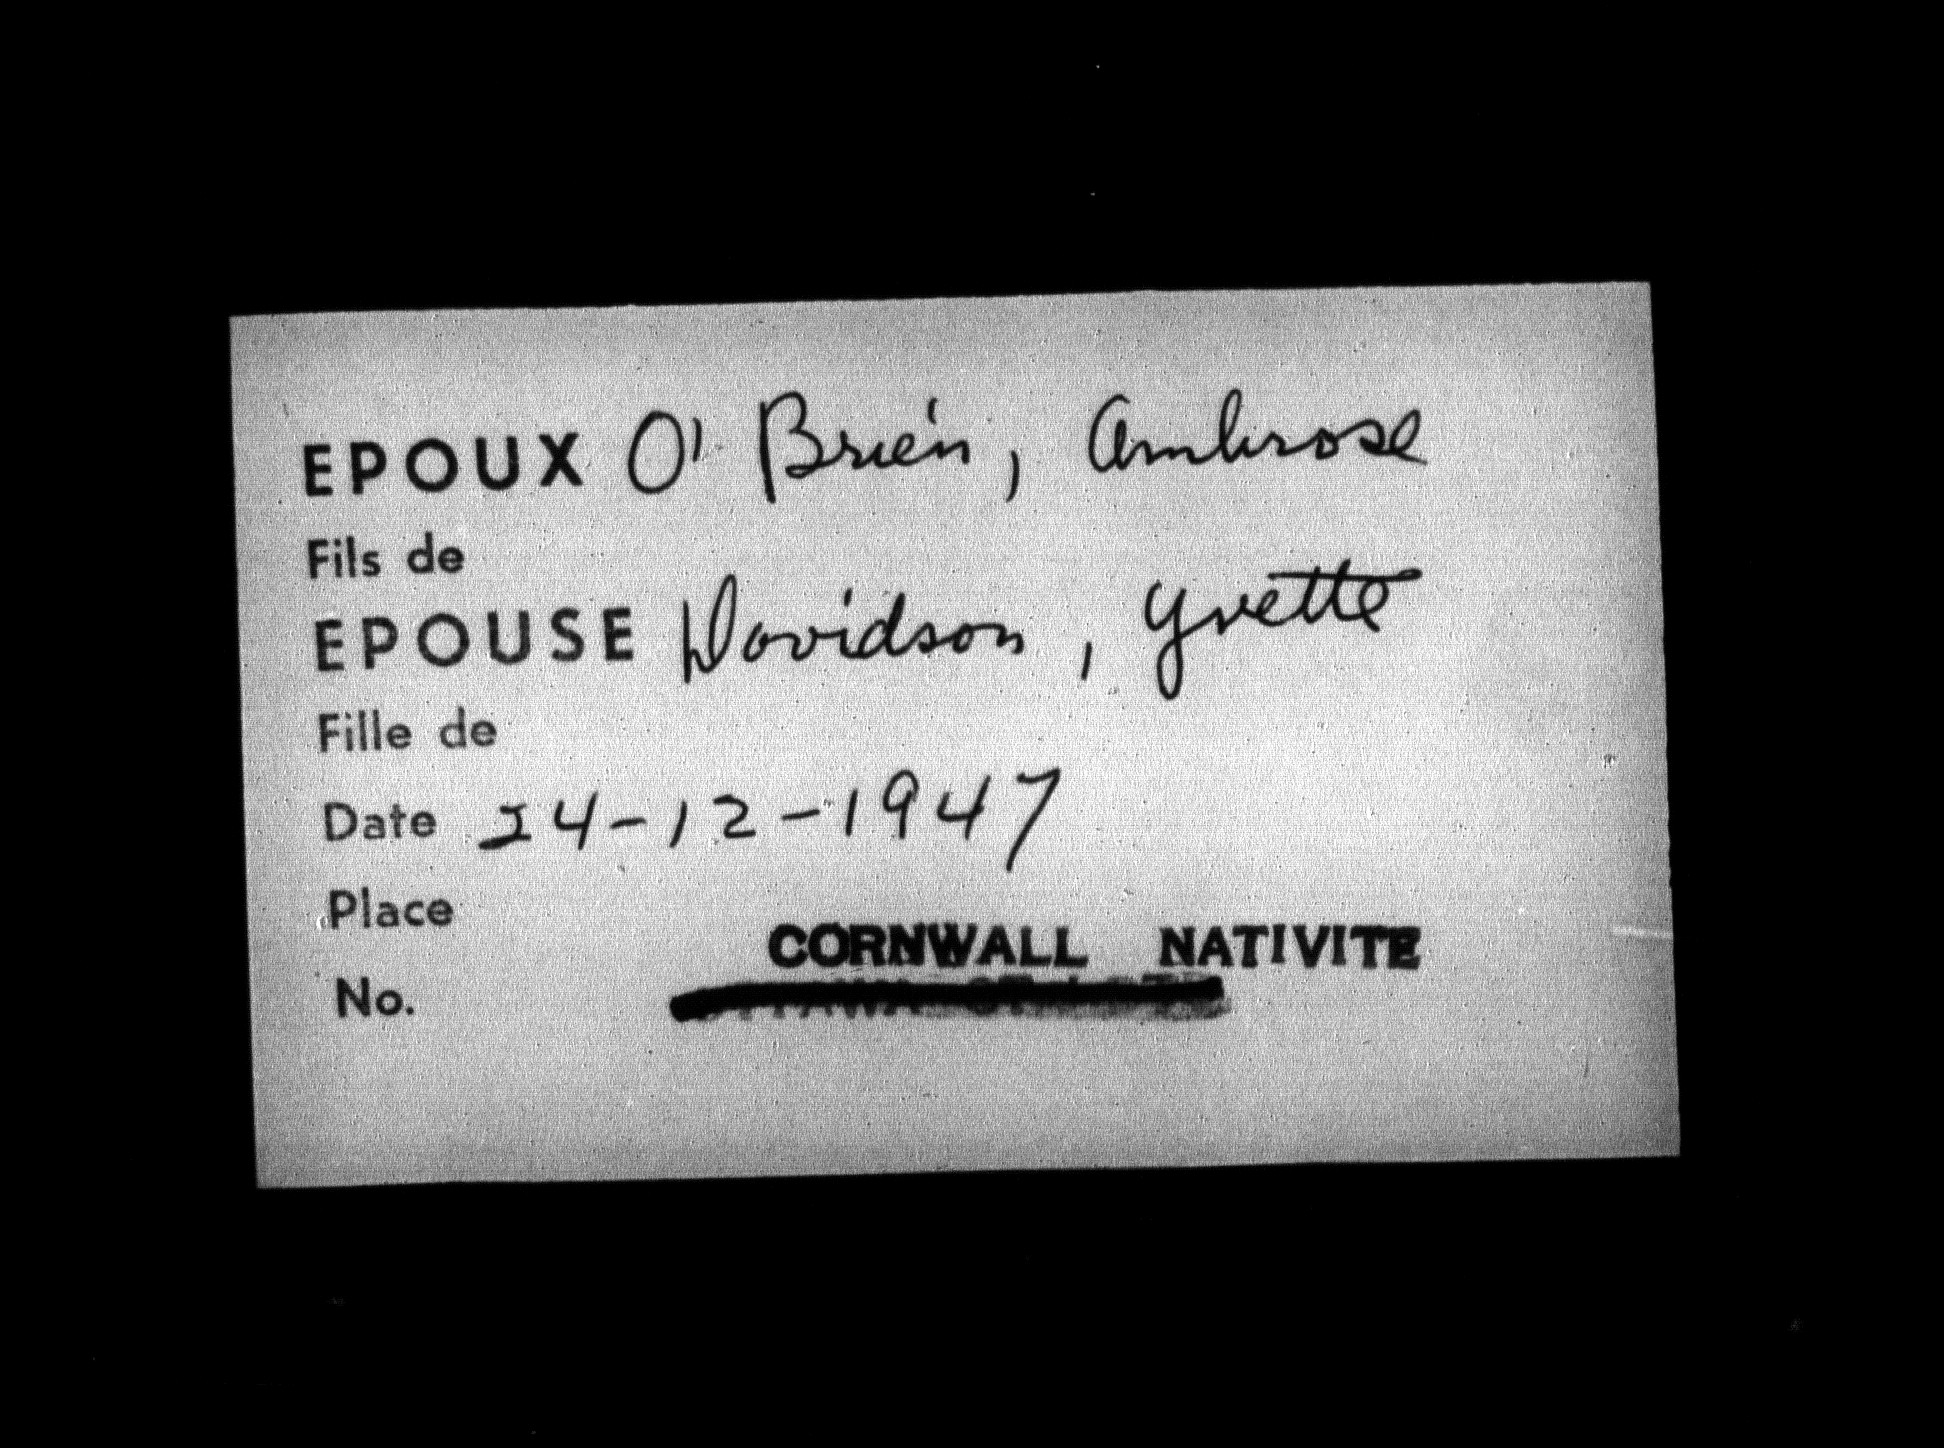 EPOUX O' Brien, Ambrose
Fils de
EPOUSE Davidson, Yvette
Fille de
Date 24-12-1947
Place
CORNWALL NATIVITE
No.